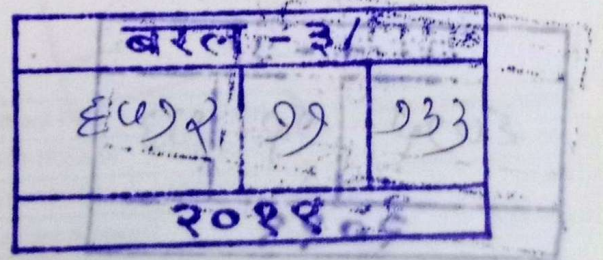 बरल - ३/
६५१२ ११ १३३
२०१९